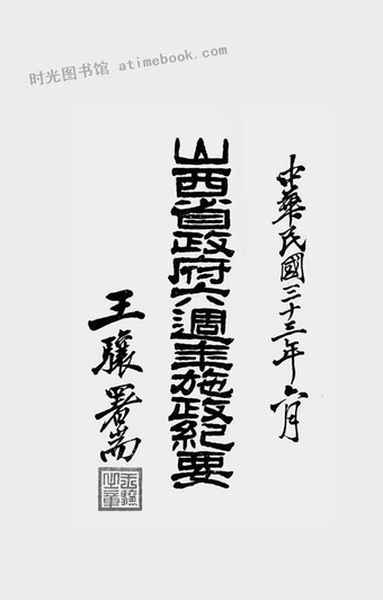 时光图书馆 atimebook.com
中華民國三十三年六月
山西省政府六週年施政紀要
王驤署耑
王驤之章